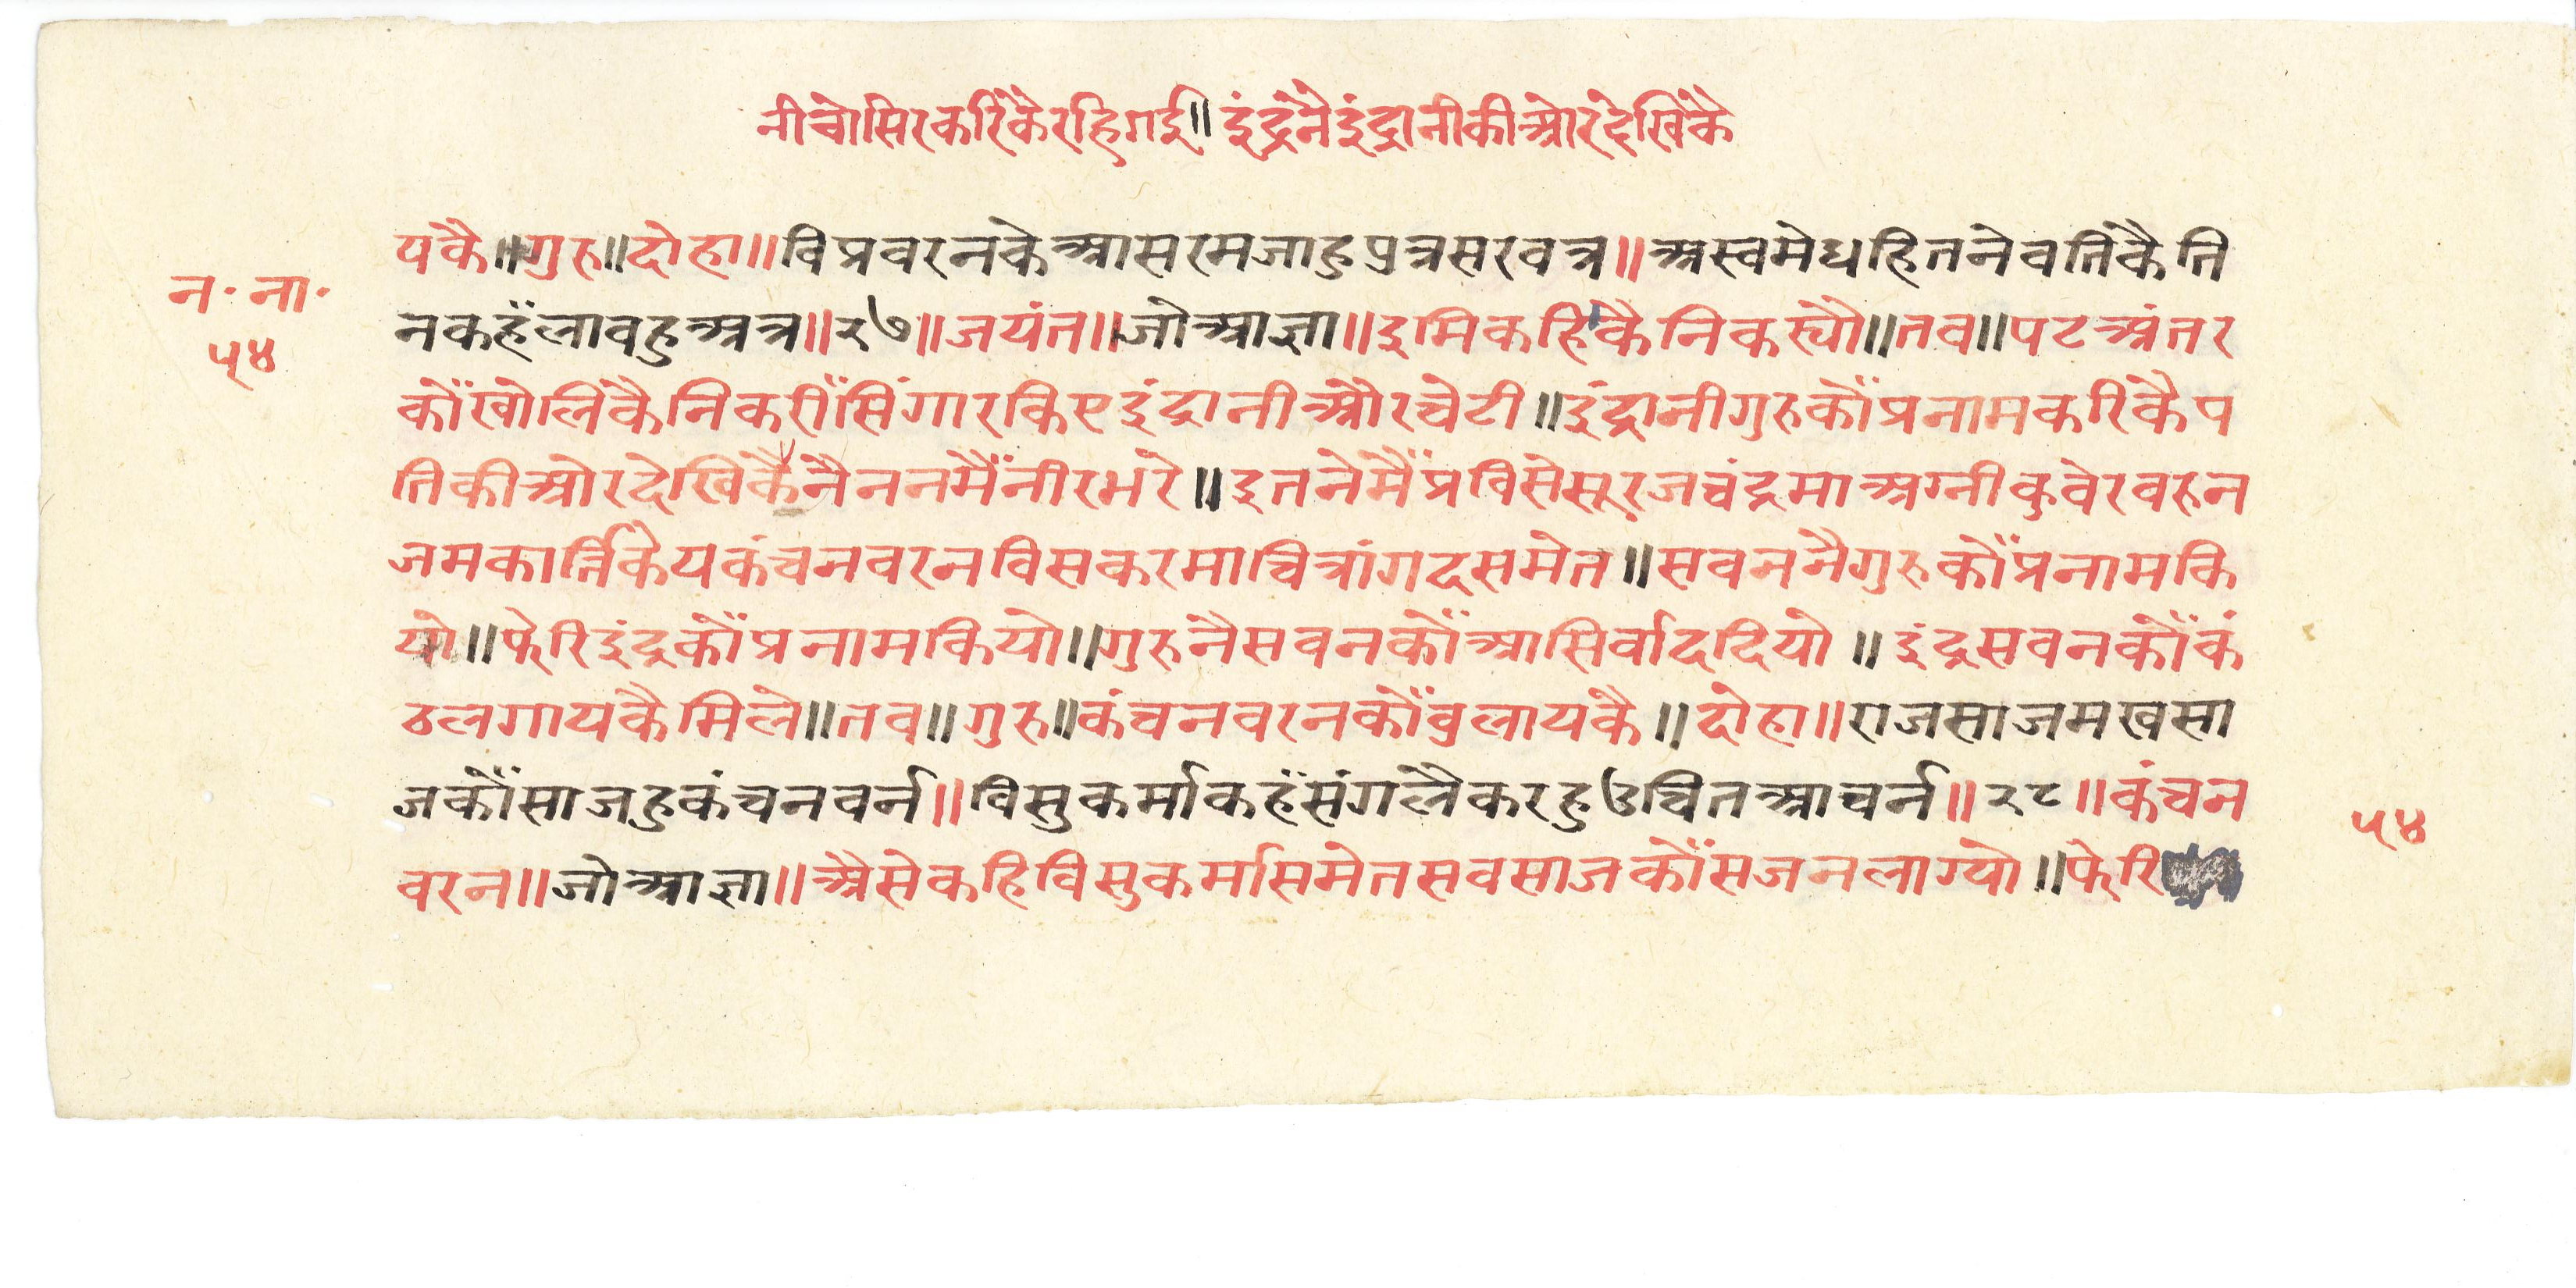 नीचोसिरकरिकैरहिगई॥ इंद्रनैइंद्रानीकीओरदेखिकै
यकै॥गुरु॥दोहा॥विप्रवरनकेआसरमजाहुपुत्रसरवत्र॥अस्वमेधहितनेवतिकैति
न॰ना॰
नकहँलावहुअत्र॥२७॥जयंत॥जोआज्ञा॥इमिकहिकैनिकस्यौ॥तव॥पटअंतर
५४
कौंखोलिकैनिकसींसिंगारकिएइंद्रानीऔरचेटी॥इंद्रानीगुरुकौंप्रनामकरिकैप
तिकीओरदेखिकैनैननमैंनीरभरे॥इतनेमैंप्रविसेसूरजचंद्रमाअग्नीकुवेरवरुन
जमकार्त्तिकेयकंचनवरनविसकरमाचित्रांगदसमेत॥सवननैगुरुकौंप्रनामकि
यो॥फेरिइंद्रकौंप्रनामकियो॥गुरुनैसवनकौंआसिर्वाददियो॥इंद्रसवनकौंकं
ठलगायकैमिले॥तव॥गुरु॥कंचनवरनकौंवुलायकै॥दोहा॥राजसाजमखसा
जकौंसाजहुकंचनवर्न॥विसुकर्माकहँसंगलैकरहुउचितआचर्न॥२८॥कंचन
५४
वरन॥जोआज्ञा॥ऐसेकहिविसुकर्मासमेतसवसाजकौंसजनलाग्यो॥फेरि